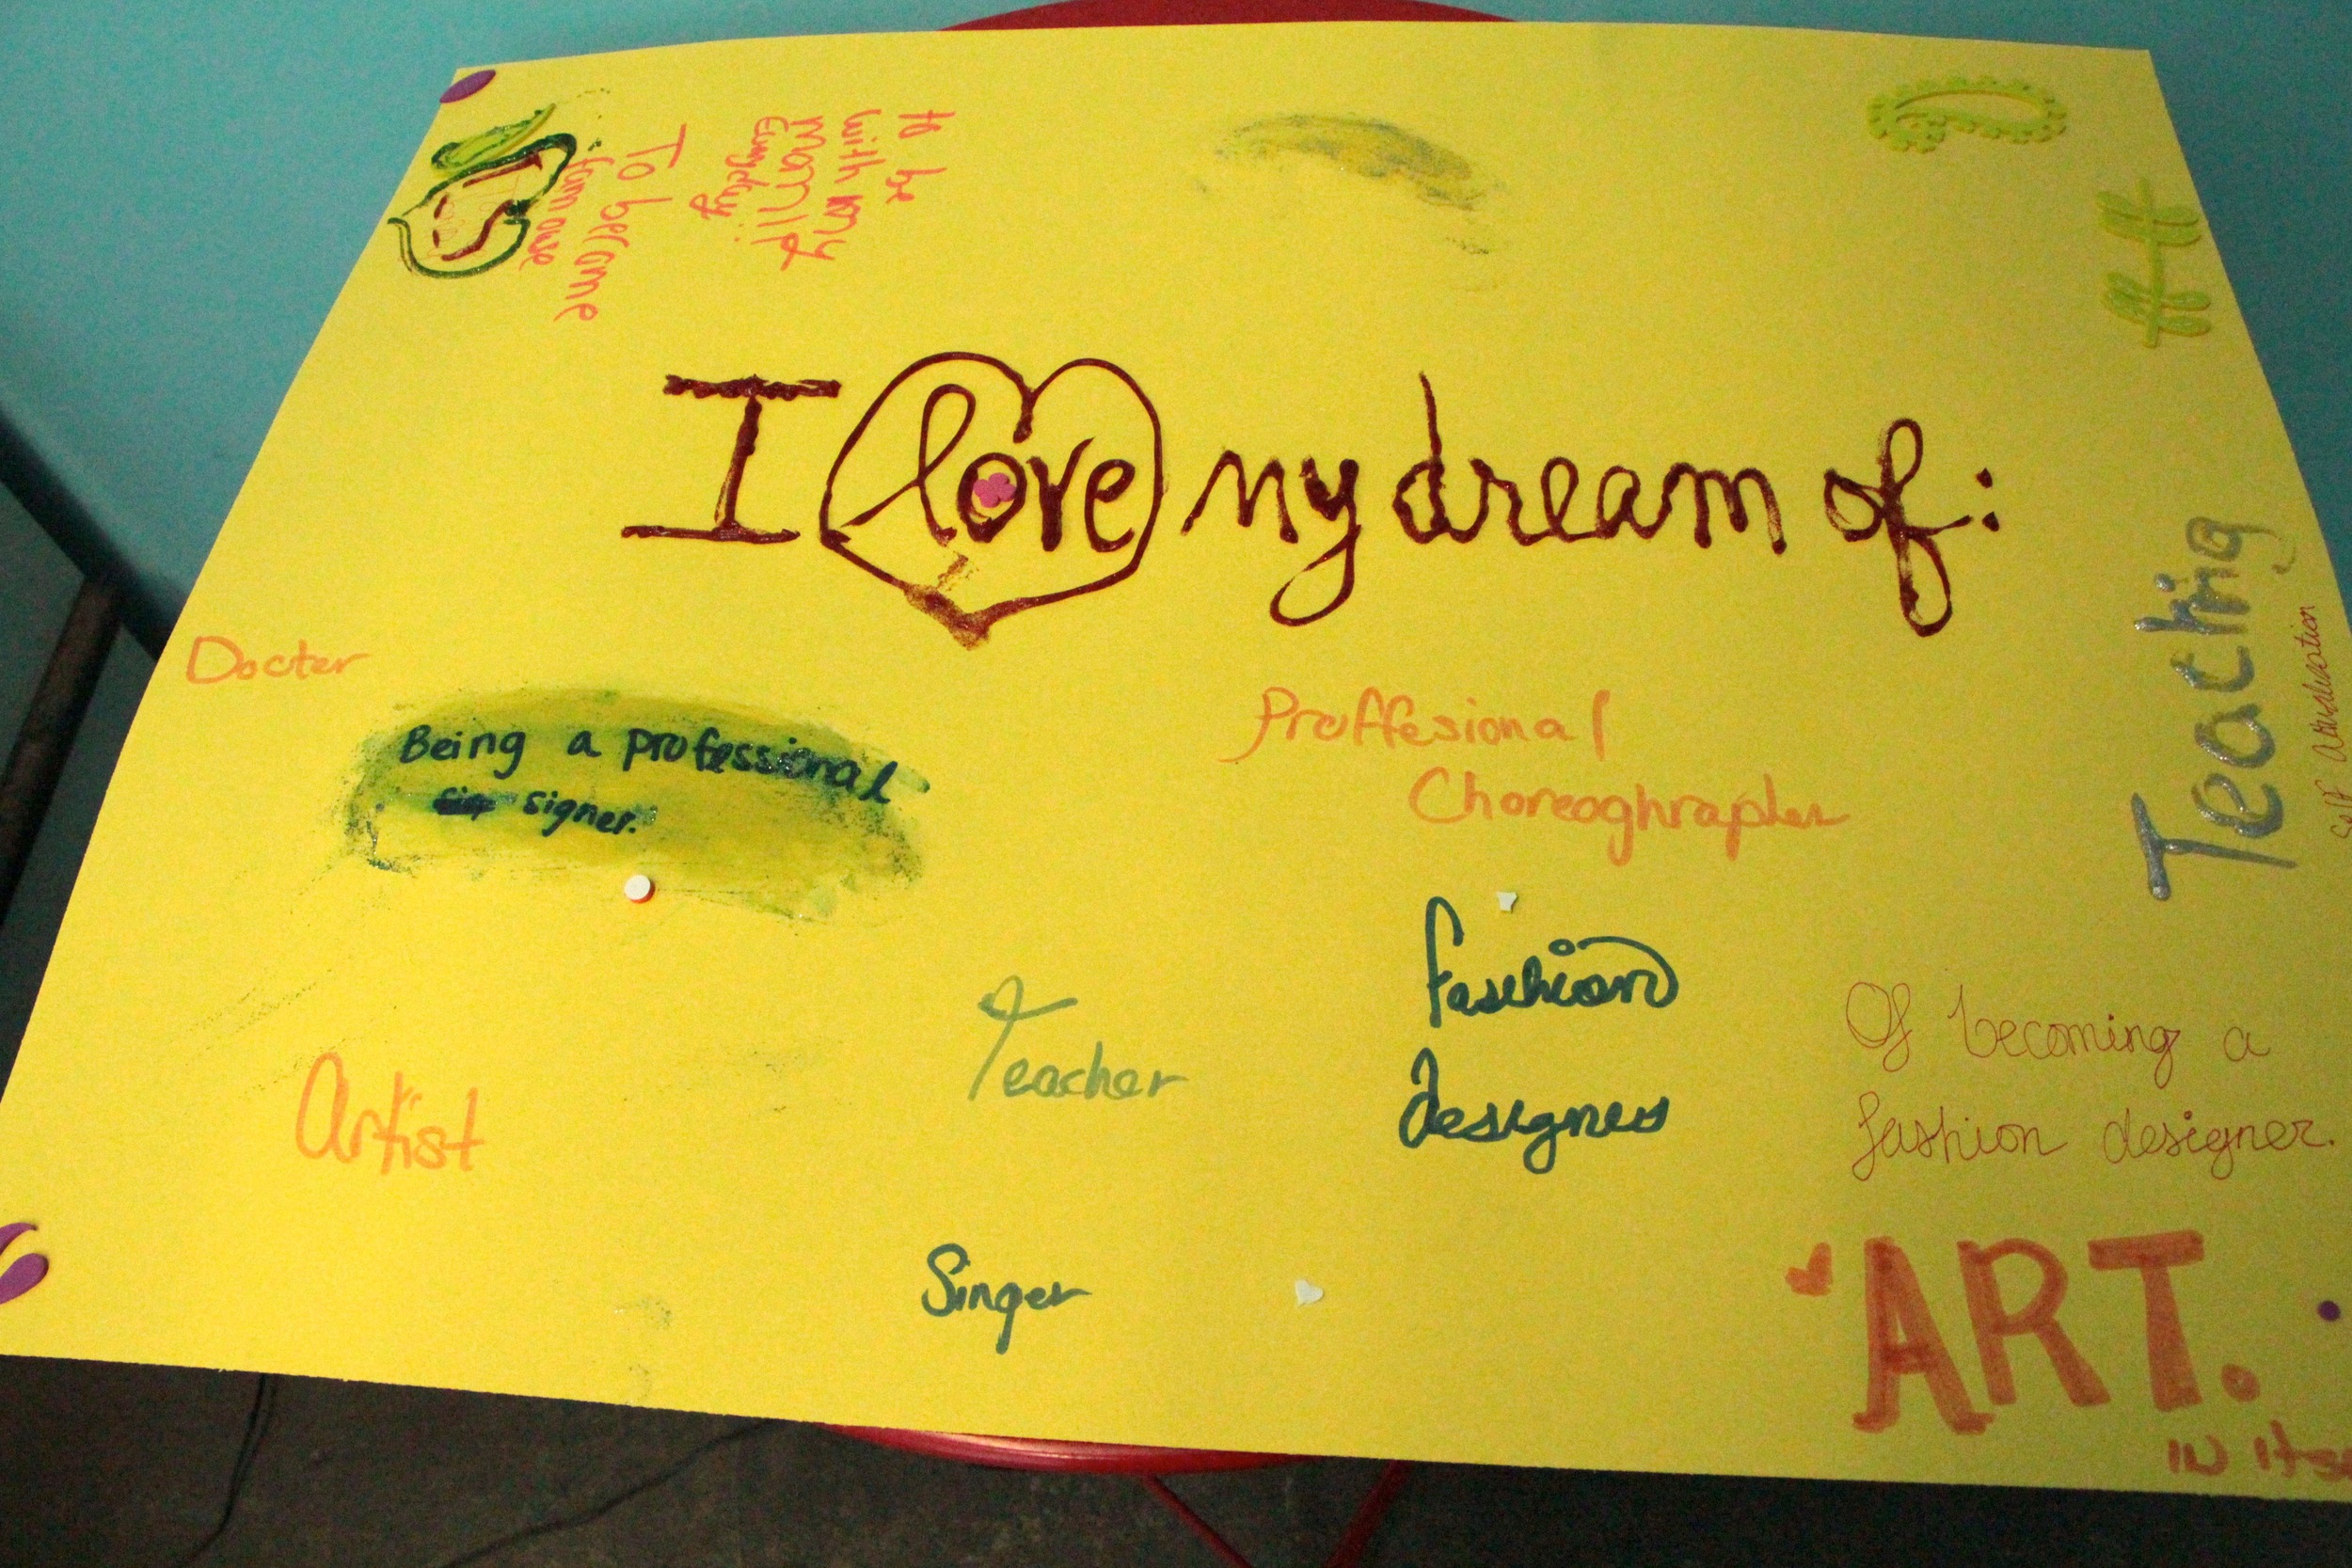 to be
with my
mamily
Everyday
To became
famouse
I love my dream of:
Docter
Being a professional
signer.
Proffesional
Choreoghrapher
Teaching
Self
Teacher
Faschion
designer
Of becoming a
fashion designer.
Artist
Singer
ART.
IN Its